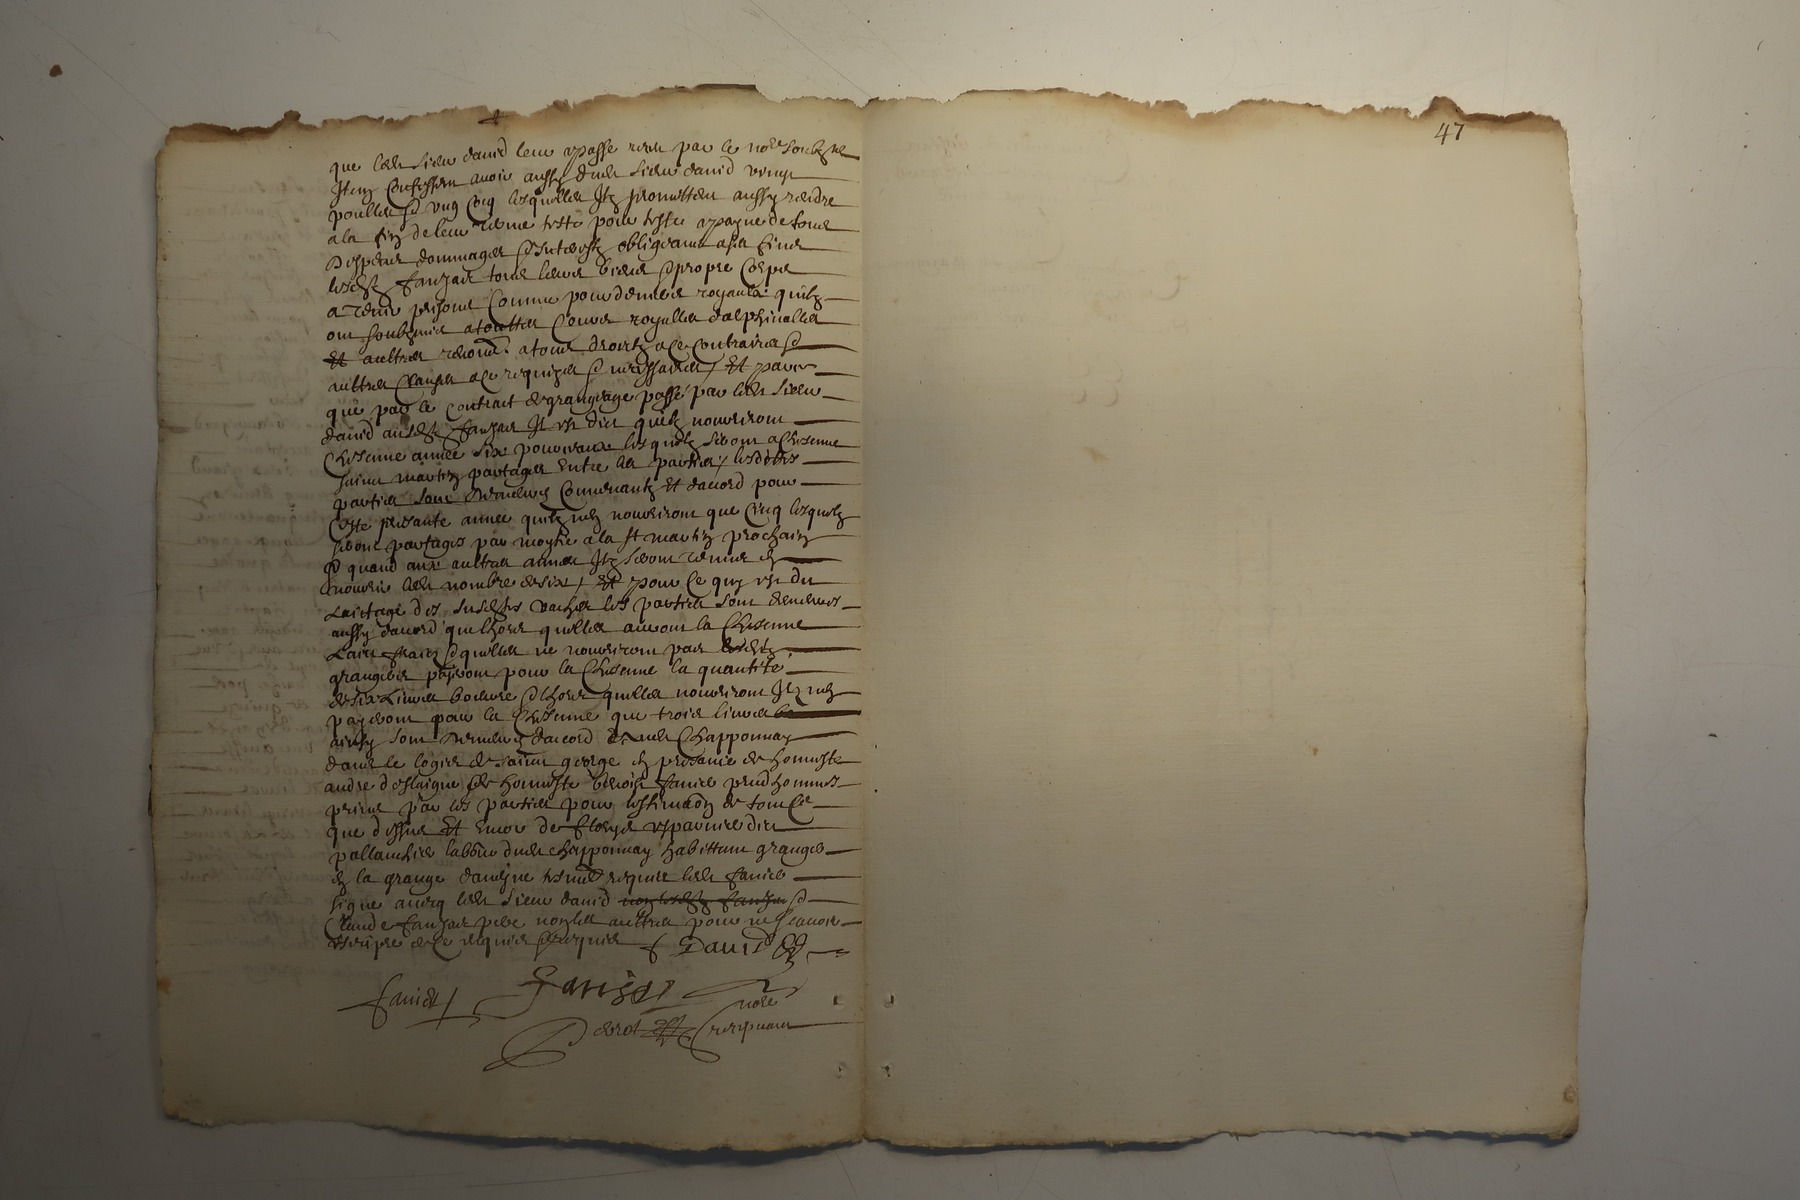 47
que led sieur david leur a passé receu par le no.re soubzne
Item confessent avoir aussy dud sieur david vingt
poulles et ung coq lesquelles Ilz promettent aussy rendre
a la fin de leur terme teste pour teste a payne de tous
despens dommages et interestz obligeant a ses fins
lesd fanjas tous leurs biens et propre corps
a tenir prison comme pour deniers royaulx quilz
ont soubzmis a touttes cours royalles dalphinalles
Et aultres renon. a tous droictz a ce contraires et
aultres clauses a ce requizes et necessaires / Et parce
que par le contract de grangeage passé par led sieur
david ausd fanjas Il est dict quilz nourriront
chescune année six pourceaux lesquelz seront a chescune
saint martin partages entre les parties / lesdites
parties sont demeurés convenantz Et daccord pour
ceste presante annee quilz nen nourriront que cinq lesquelz
seront partages par moytie a la st martin prochain
et quand aux aultres annees Ilz seront tenus en
nourrir led nombre de six / Et pour ce quy est du
laictage des susdites vaches les parties sont demeures
aussy daccord que lhors quelles auront la chescune
laict frais et quelles ne nourriront pas lesd
grangiers payeront pour la chescune la quantité
de six livres beurre et lhors quelles nourriront Ilz nen
payeront pour la chescune que trois livres
ainsy sont demeurés daccord aud Chapponnay
dans le logis de saint george en presance de honneste
andre et de honneste benoist fanies prudhommes
prins par les parties pour lestimaon de tout ce
que dessus Et encor de dict
pallanchier labour dud chapponnay habittant granger
en la grange tesmoins requis led fanies
signé avecq led sieur david non lesd fanjas et
Claude fanjas pere non les aultres pour ne scavoir
escripre de ce enquis et requis David
fanies fanjas
no.re
recepvant